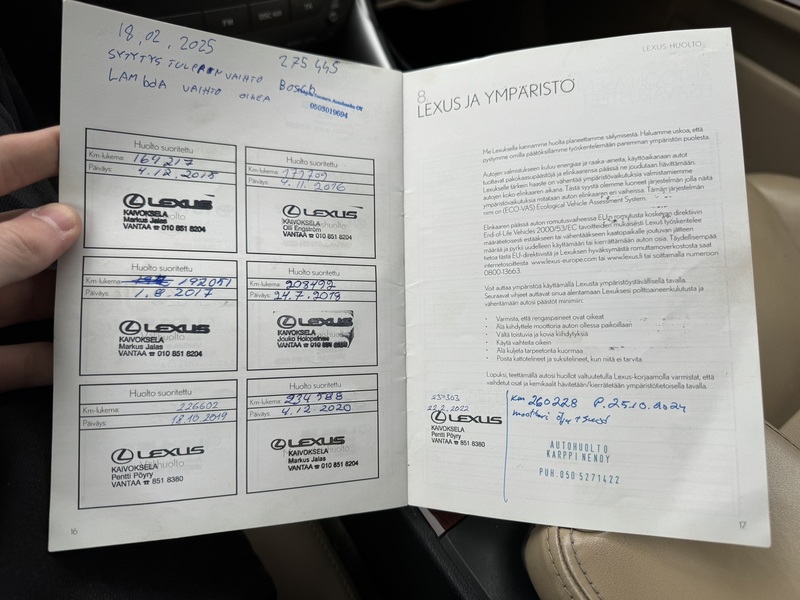 18.02.2025 275 445
SYTYTYS TULPPAIN VAIHTO Bosch
LAMbdA VAIHTO OIKEA
0503019694
Huolto suoritettu
Km-lukema: 164217
Päiväys: 4.12.2015
LEXUS
KAIVOKSELA
Markus Jalas
VANTAA ☎ 010 851 8204
Huolto suoritettu
Km-lukema: 177709
Päiväys: 4.11.2016
LEXUS
KAIVOKSELA
Olli Engström
VANTAA ☎ 010 851 8204
Huolto suoritettu
Km-lukema: 192051
Päiväys: 1.8.2017
LEXUS
KAIVOKSELA
Markus Jalas
VANTAA ☎ 010 851 8204
Huolto suoritettu
Km-lukema: 208492
Päiväys: 24.7.2018
LEXUS
KAIVOKSELA
Jouko Holopainen
VANTAA ☎ 010
Huolto suoritettu
Km-lukema: 226602
Päiväys: 18.10.2019
LEXUS
KAIVOKSELA
Pentti Pöyry
VANTAA ☎ 851 8380
Huolto suoritettu
Km-lukema: 234588
Päiväys: 4.12.2020
LEXUS
KAIVOKSELA
Markus Jalas
VANTAA ☎ 010 851 8204
16
LEXUS HUOLTO
8.
LEXUS JA YMPÄRISTÖ
Me Lexuksella kannamme huolta planeettamme säilymisestä. Haluamme uskoa, että
pystymme omilla päätöksillämme työskentelemään paremman ympäristön puolesta.
Autojen valmistukseen kuluu energiaa ja raaka-aineita, käyttöaikanaan autot
tuottavat pakokaasupäästöjä ja elinkaarensa päässä ne joudutaan hävittämään.
Lexukselle tärkein haaste on vähentää ympäristövaikutuksia valmistamiemme
autojen koko elinkaaren aikana. Tästä syystä olemme luoneet järjestelmän jolla näitä
ympäristövaikutuksia mitataan auton elinkaaren eri vaiheissa. Tämän järjestelmän
nimi on (ECO-VAS) Ecological Vehicle Assessment System.
Elinkaaren päässä auton romutusvaiheessa EU:n romutusta koskeva direktiivin
End of Life Vehicles 2000/53/EC tavoitteiden mukaisesti Lexus Työskentelee
määrätietoisesti estääkseen tai vähentääkseen kaatopaikalle joutuvan jätteen
määrää ja pyrkii uudelleen käyttämään tai kierrättämään auton osia. Täydellisempää
tietoa tästä EU-direktiivistä ja Lexuksen hyväksymistä romuttamoverkostosta saat
internetosoitteista www.lexus-europe.com tai www.lexus.fi tai soittamalla numeroon
0800-13663.
Voit auttaa ympäristöä käyttämällä Lexusta ympäristöystävällisellä tavalla.
Seuraavat ohjeet auttavat sinua alentamaan Lexuksesi polttoaineenkulutusta ja
vähentämään autosi päästöt minimiin:
• Varmista, että rengaspaineet ovat oikeat
• Älä kiihdyttele moottoria auton ollessa paikoillaan
• Vältä toistuvia ja kovia kiihdytyksiä
• Käytä vaihteita oikein
• Älä kuljeta tarpeetonta kuormaa
• Poista kattotelineet ja suksitelineet, kun niitä ei tarvita
Lopuksi, teettämällä autosi huollot valtuutetulla Lexus-korjaamolla varmistat, että
vaihdetut osat ja kemikaalit hävitetään/kierrätetään ympäristötietoisella tavalla.
237303
22.2.2022
LEXUS
KAIVOKSELA
Pentti Pöyry
VANTAA ☎ 851 8380
Km 260228 P. 25.10.2024
moottori öljy + suod
AUTOHUOLTO
KARPPINEN OY
PUH. 050 5271422
17